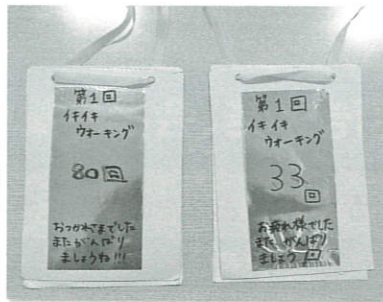 第1回
イキイキ
ウォーキング
80回
おつかれさまでした
またがんばり
ましょうね!!!
第1回
イキイキ
ウォーキング
33
回
お疲れ様でした
また がんばり
ましょう